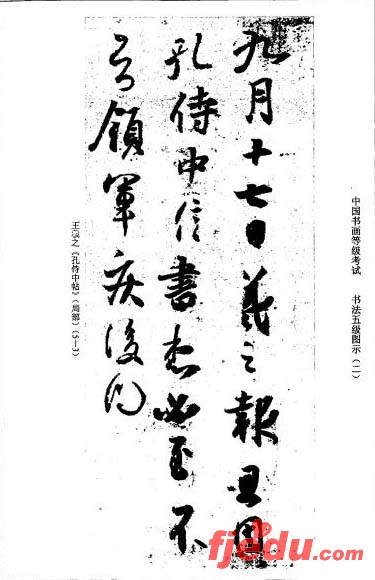 中国书画等级考试 书法五级图示(二)
九月十七日羲之報且因
孔侍中信書想必至不
知領軍疾後問
王羲之《孔侍中帖》(局部)(5—3)